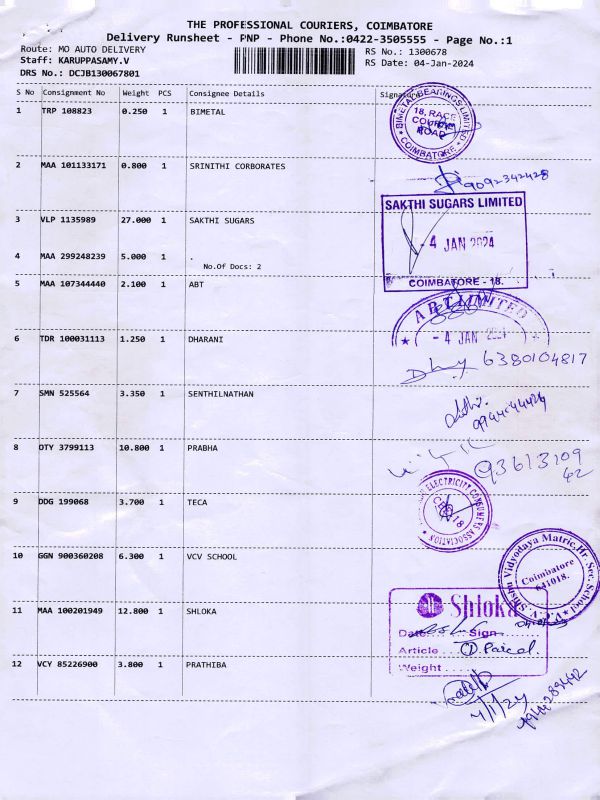 THE PROFESSIONAL COURIERS, COIMBATORE
Delivery Runsheet - PNP - Phone No.:0422-3505555 - Page No.:1
Route: MO AUTO DELIVERY RS No.: 1300678
Staff: KARUPPASAMY.V RS Date: 04-Jan-2024
DRS No.: DCJB130067801
S No Consignment No Weight PCS Consignee Details Signature
1 TRP 108823 0.250 1 BIMETAL
BIMETAL BEARINGS LIMITED
18, RACE
COURSE
ROAD
COIMBATORE
2 MAA 101133171 0.800 1 SRINITHI CORBORATES
9092342428
3 VLP 1135989 27.000 1 SAKTHI SUGARS
SAKTHI SUGARS LIMITED
- 4 JAN 2024
COIMBATORE - 18.
4 MAA 299248239 5.000 1 .
No.Of Docs: 2
5 MAA 107344440 2.100 1 ABT
ABT LIMITED
- 4 JAN 2024
6 TDR 100031113 1.250 1 DHARANI
6380104817
7 SMN 525564 3.350 1 SENTHILNATHAN
8 OTY 3799113 10.800 1 PRABHA
93613109
62
9 DDG 199068 3.700 1 TECA
ELECTRICITY CONSUMERS ASSOCIATION
CBE-18
10 GGN 900360208 6.300 1 VCV SCHOOL
V.C.V. Shishu Vidyodaya Matric.Hr. Sec. School
Coimbatore
641018.
11 MAA 100201949 12.800 1 SHLOKA
Shloka
Date Sign
Article ① Parcel
Weight
12 VCY 85226900 3.800 1 PRATHIBA
4/1/24
9944289442